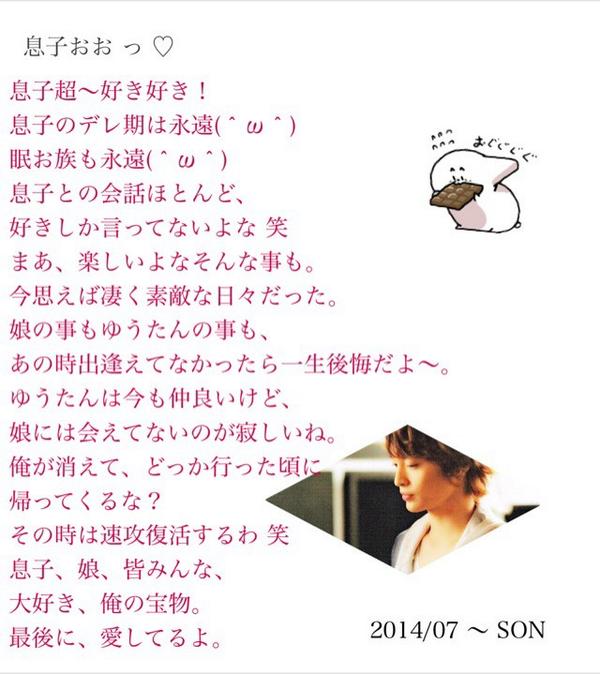 息子おお っ ♡
息子超〜好き好き！
息子のデレ期は永遠(＾ω＾)
眠お族も永遠(＾ω＾)
息子との会話ほとんど、
好きしか言ってないよな 笑
まあ、楽しいよなそんな事も。
今思えば凄く素敵な日々だった。
娘の事もゆうたんの事も、
あの時出逢えてなかったら一生後悔だよ〜。
ゆうたんは今も仲良いけど、
娘には会えてないのが寂しいね。
俺が消えて、どっか行った頃に
帰ってくるな？
その時は速攻復活するわ 笑
息子、娘、皆みんな、
大好き、俺の宝物。
最後に、愛してるよ。
2014/07 〜 SON